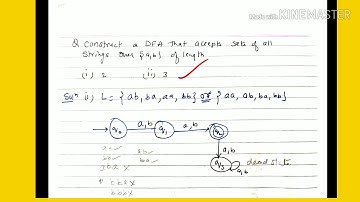 Made with KINEMASTER
Q Construct a DFA That accepts sets of all
strings over {a,b} of length
(i) 2 (ii) 3
Solⁿ i) L = {ab, ba, aa, bb} or {aa, ab, ba, bb}
q0 a,b q1 a,b q2
a,b
q3 a,b dead st.
aa ab
bb ba